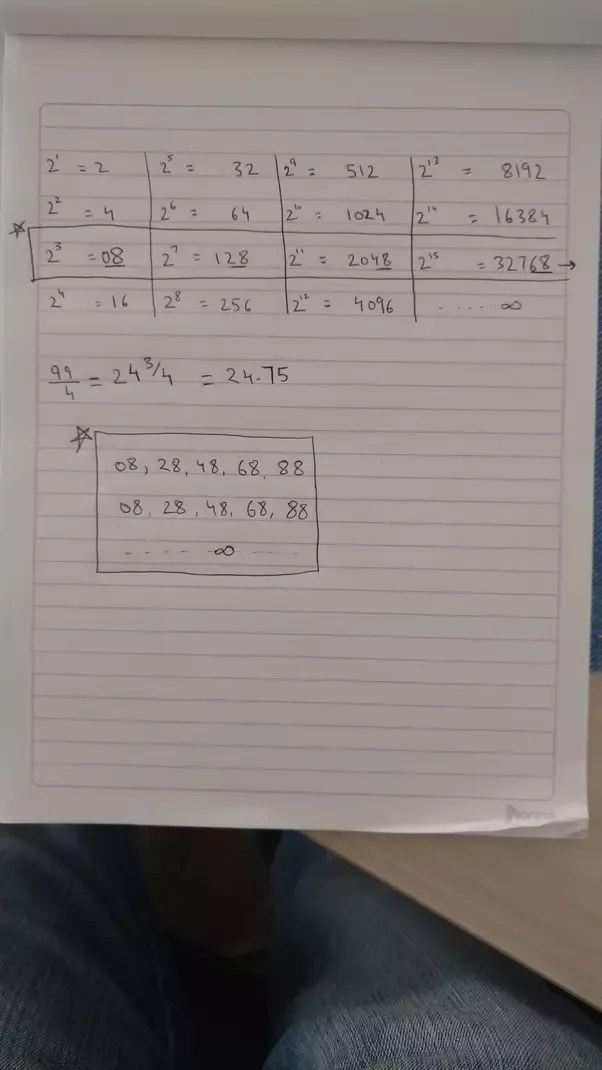 2¹ = 2 2⁵ = 32 2⁹ = 512 2¹³ = 8192
2² = 4 2⁶ = 64 2¹⁰ = 1024 2¹⁴ = 16384
☆ 2³ = 08 2⁷ = 128 2¹¹ = 2048 2¹⁵ = 32768 →
2⁴ = 16 2⁸ = 256 2¹² = 4096 ...... ∞
99/4 = 24 3/4 = 24.75
☆
08, 28, 48, 68, 88
08, 28, 48, 68, 88
.... ∞ ....